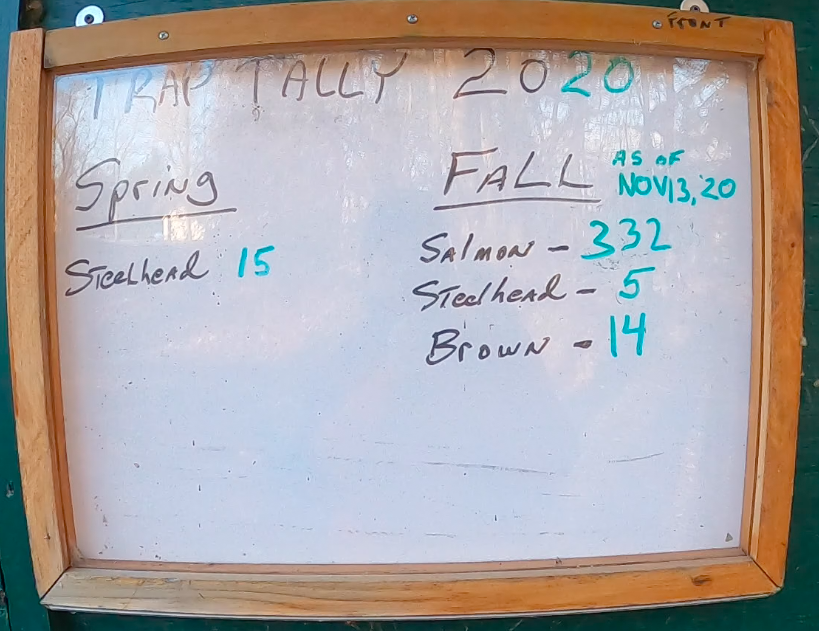 FRONT
TRAP TALLY 2020
Spring
Steelhead 15
FALL AS OF NOV 13, '20
Salmon - 332
Steelhead - 5
Brown - 14